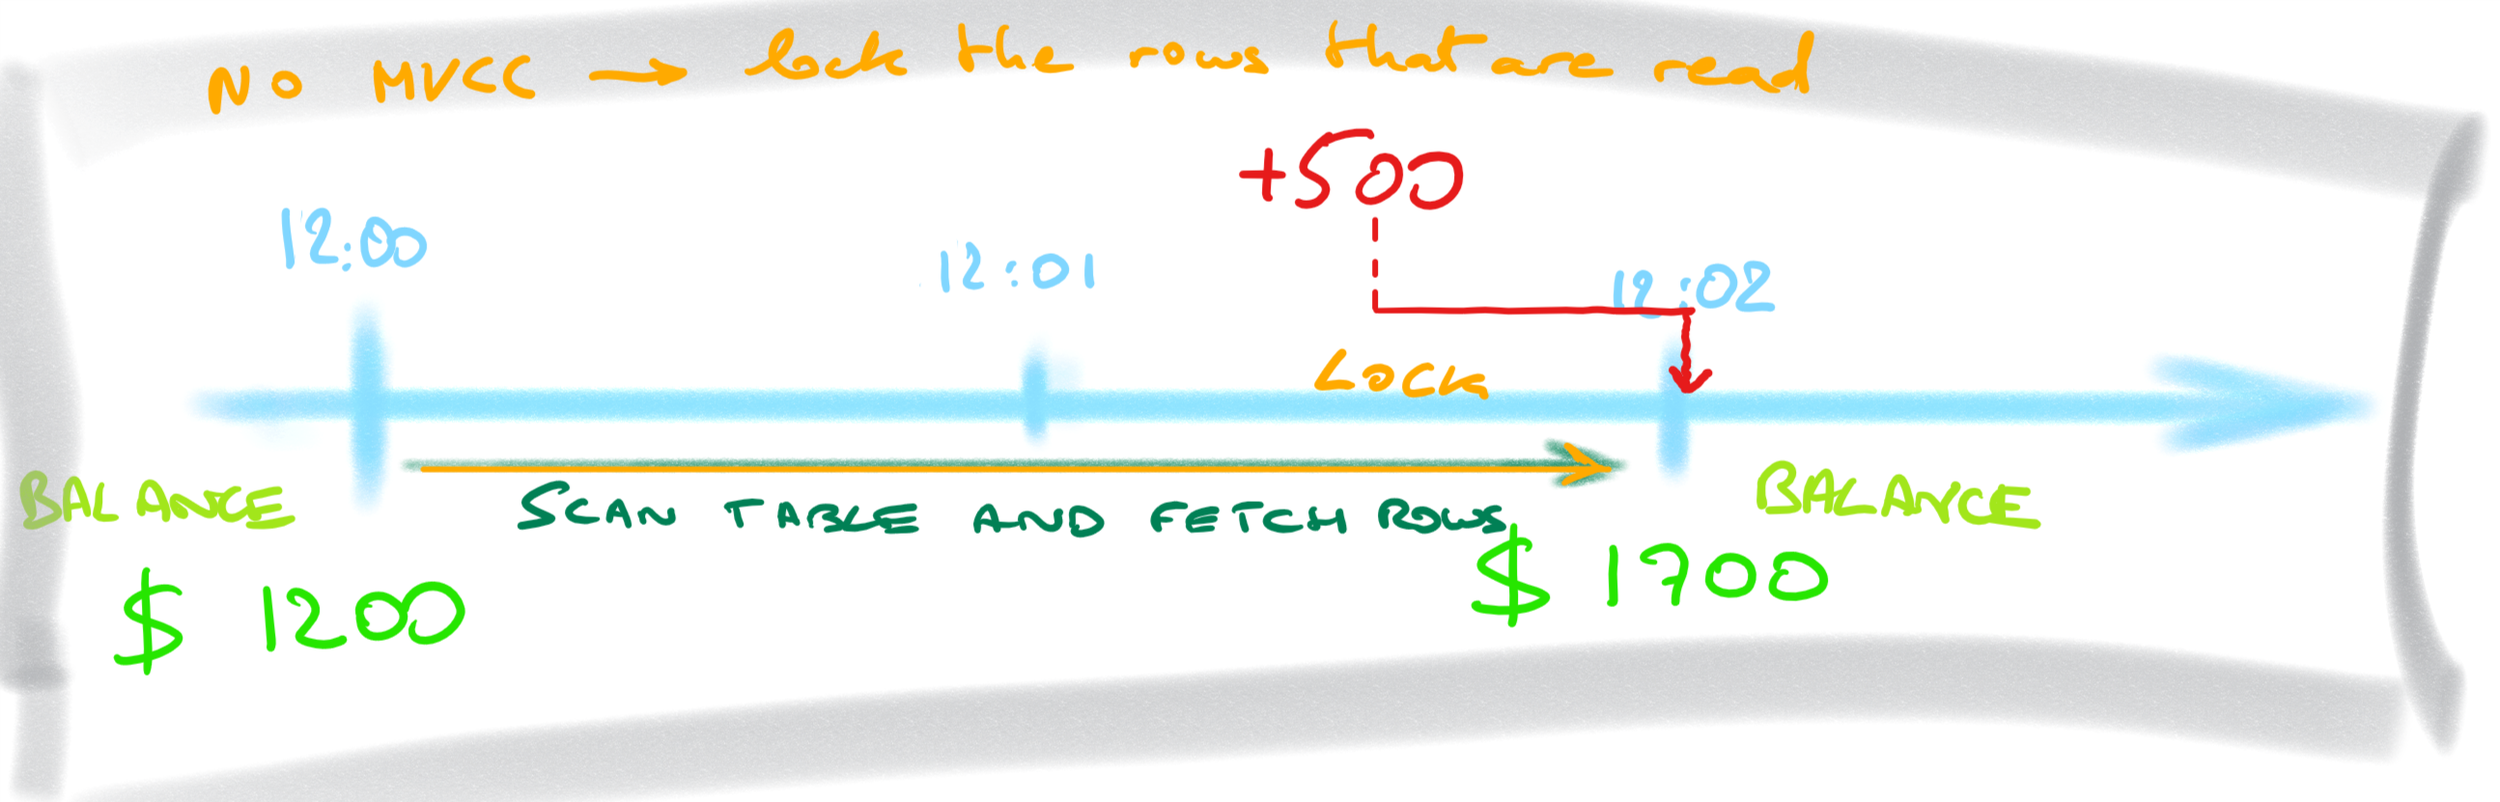 No MVCC → lock the rows that are read
+500
12:00
12:01
12:02
LOCK
BALANCE
SCAN TABLE AND FETCH ROWS
BALANCE
$ 1200
$ 1700